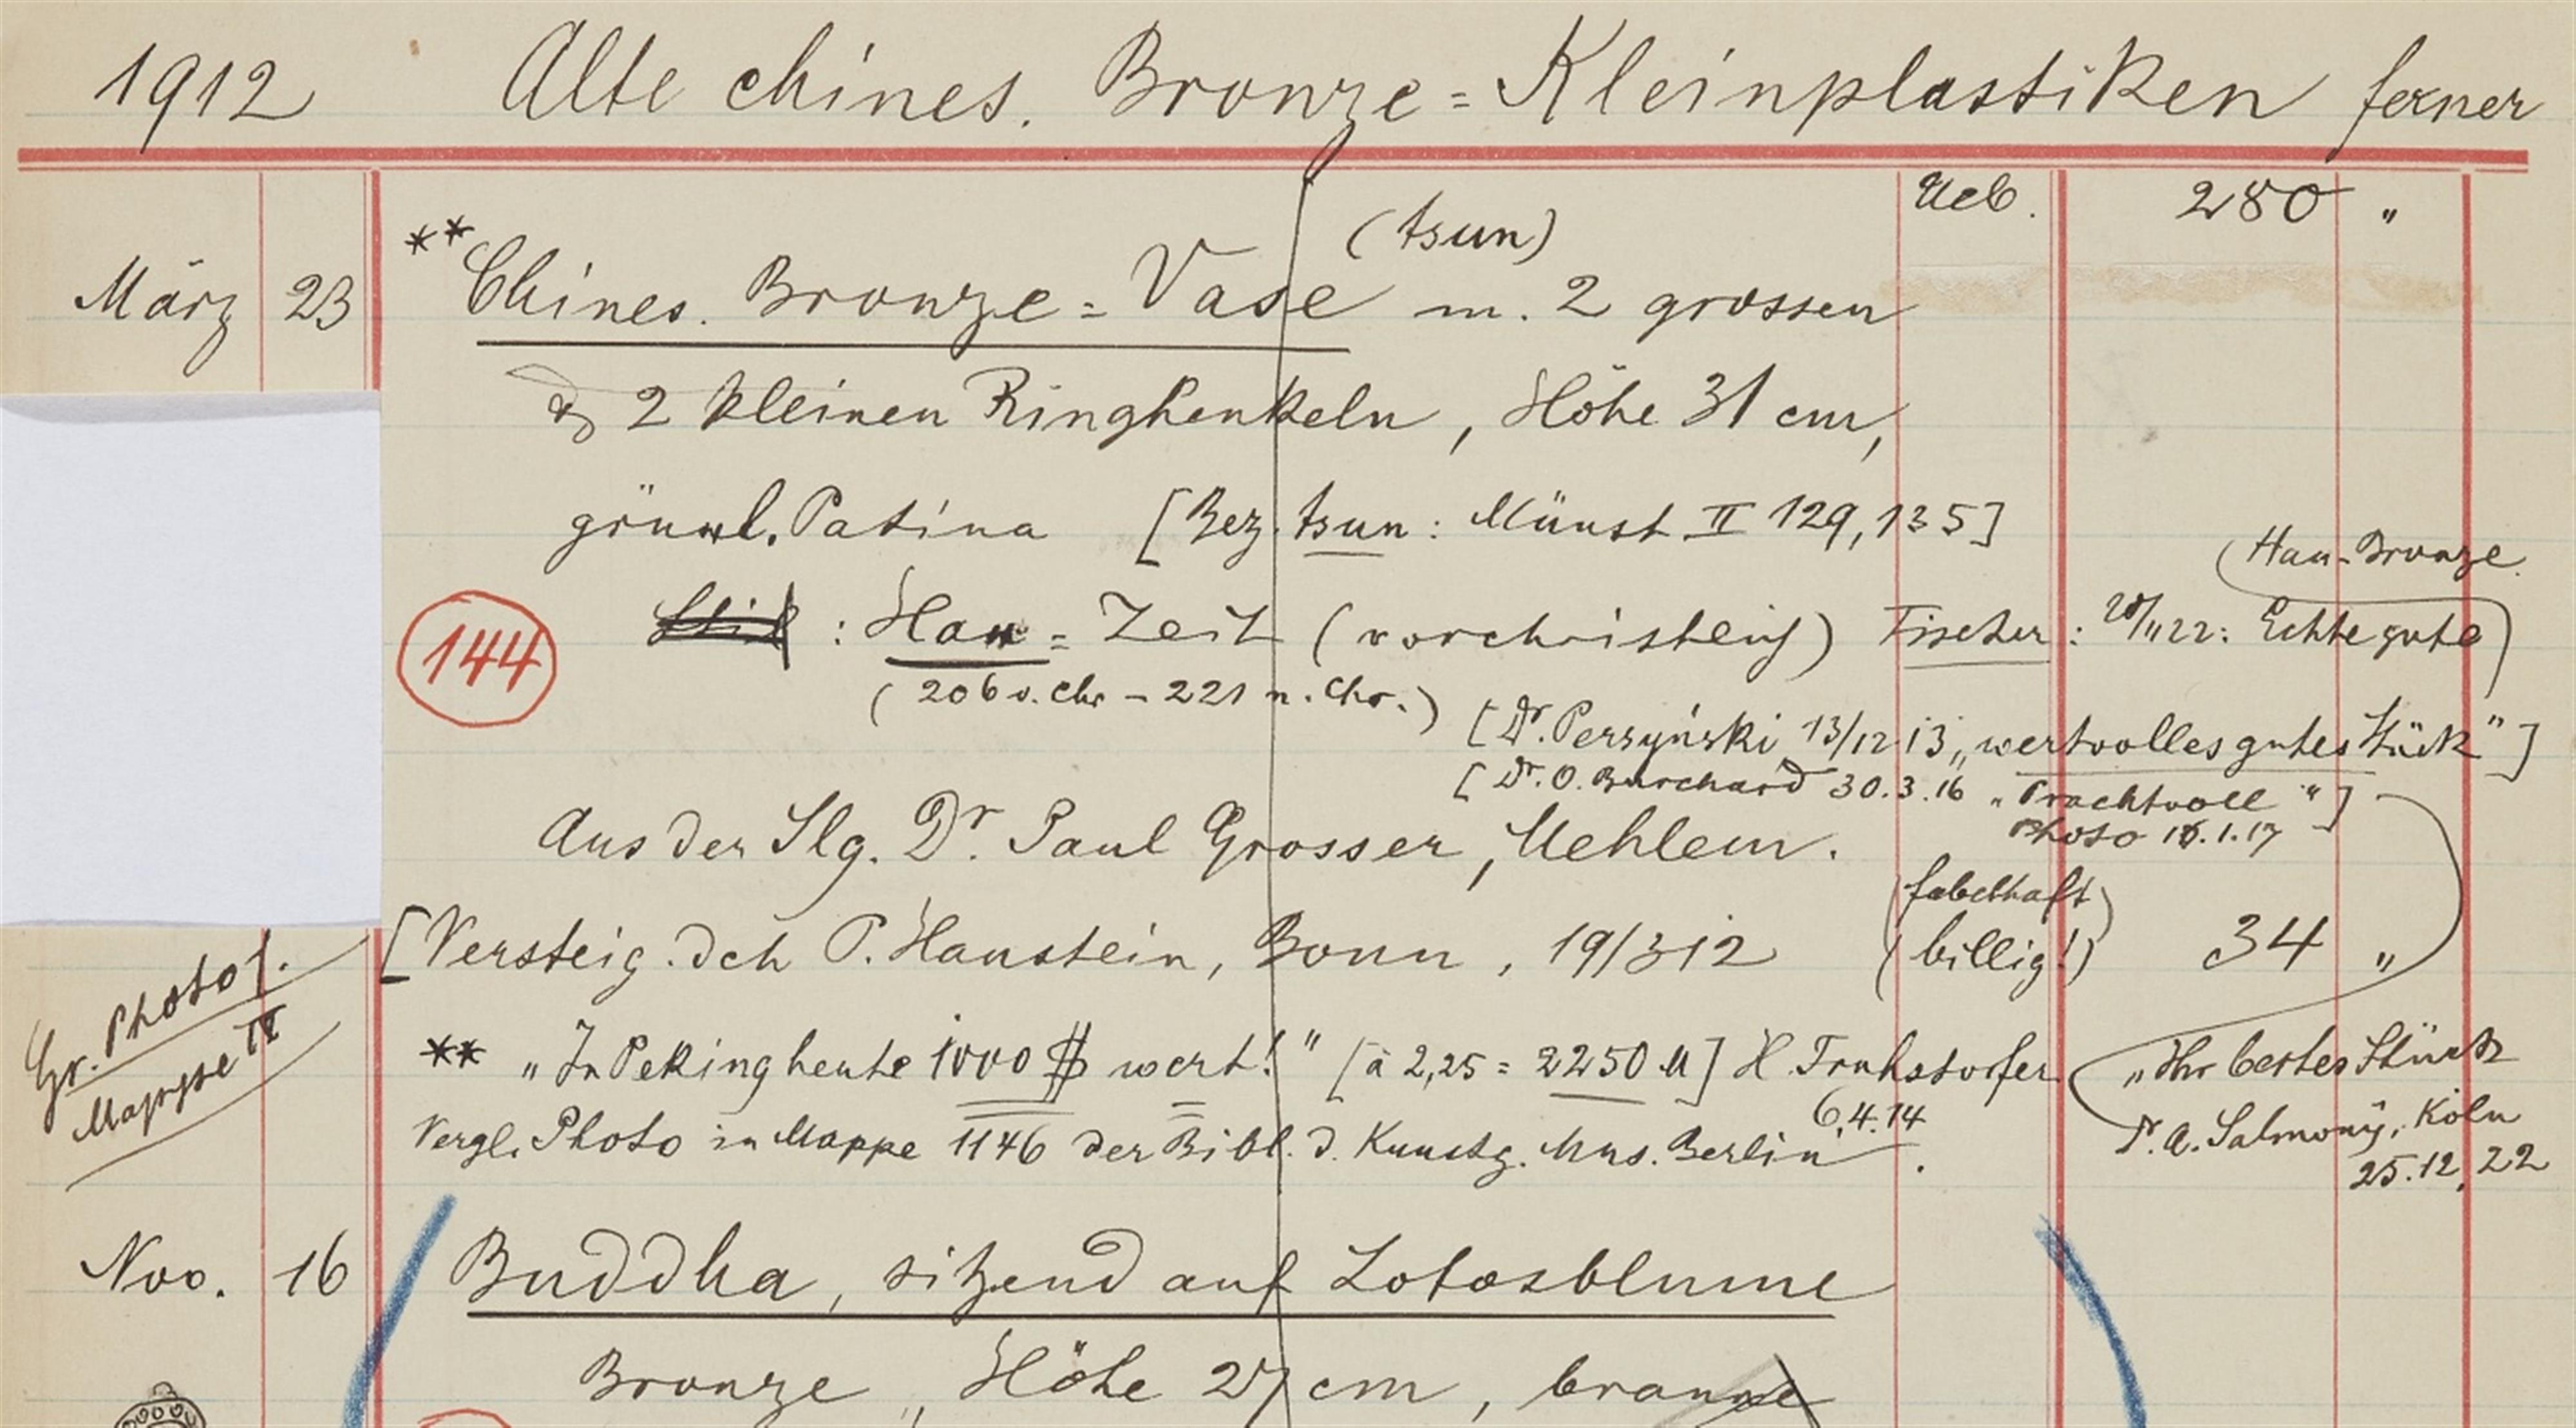 1912 Alte chines. Bronze=Kleinplastiken ferner
Ueb. 280 "
(tsun)
März 23 ** Chines. Bronze=Vase m. 2 grossen
& 2 kleinen Ringhenkeln, Höhe 31 cm,
grünl. Patina [Bez. tsun: Münst II 129, 135]
(Han-Bronze
144 Stil : Han=Zeit (vorchristlich) Fischer: 20/11 22: Echte gute)
(206 v. Chr – 221 n. Chr.)
[Dr. Perzyński 13/12 13 „wertvolles gutes Stück"]
[Dr. O. Burchard 30.3.16 „Prachtvoll"]
Photo 16.1.17
Aus der Slg. Dr. Paul Grosser, Mehlem.
(fabelhaft
[Versteig. dch P. Hanstein, Bonn, 19/3 12 billig!) 34 "
Gr. Photo f.
Mappe IV
** „In Peking heute 1000 $ wert!" [à 2,25 = 2250 M] H Fruhstorfer
6.4.14
„Ihr bestes Stück
Dr. A. Salmony, Köln
25.12.22
Vergl. Photo in Mappe 1146 der Bibl. d. Kunstg. Mus. Berlin.
Nov. 16 Buddha, sitzend auf Lotosblume
Bronze, Höhe 27 cm, braune